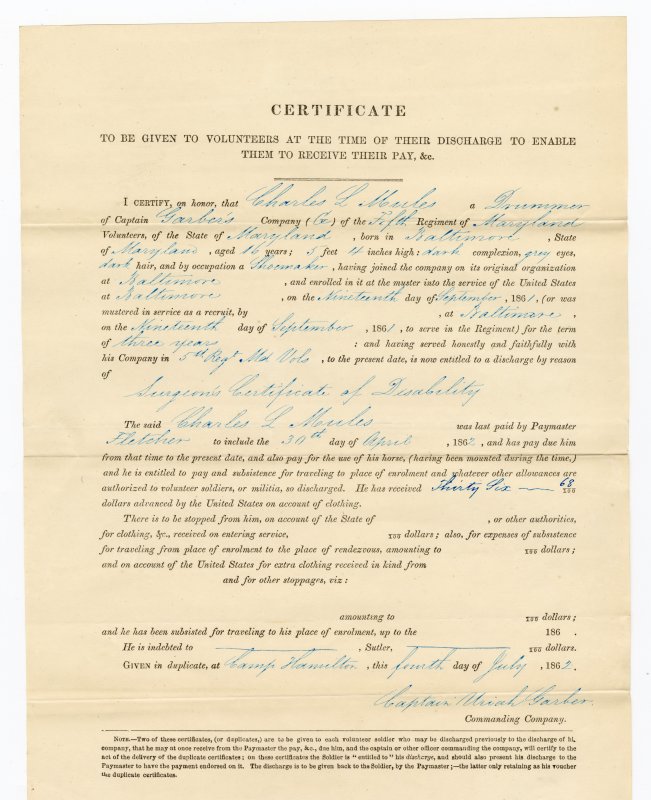 CERTIFICATE
TO BE GIVEN TO VOLUNTEERS AT THE TIME OF THEIR DISCHARGE TO ENABLE
THEM TO RECEIVE THEIR PAY, &c.
I CERTIFY, on honor, that Charles L Mules a Drummer
of Captain Garber's Company (G) of the Fifth Regiment of Maryland
Volunteers, of the State of Maryland, born in Baltimore, State
of Maryland, aged 16 years; 5 feet 4 inches high; dark complexion, grey eyes,
dark hair, and by occupation a Shoemaker, having joined the company on its original organization
at Baltimore, and enrolled in it at the muster into the service of the United States
at Baltimore, on the Nineteenth day of September, 1861, (or was
mustered in service as a recruit, by , at Baltimore,
on the Nineteenth day of September, 1861, to serve in the Regiment) for the term
of three years : and having served honestly and faithfully with
his Company in 5th Regt Md Vols, to the present date, is now entitled to a discharge by reason
of
Surgeon's Certificate of Disability
The said Charles L Mules was last paid by Paymaster
Fletcher to include the 30th day of April, 1862, and has pay due him
from that time to the present date, and also pay for the use of his horse, (having been mounted during the time,)
and he is entitled to pay and subsistence for traveling to place of enrolment and whatever other allowances are
authorized to volunteer soldiers, or militia, so discharged. He has received Thirty Six — 68/100
dollars advanced by the United States on account of clothing.
There is to be stopped from him, on account of the State of , or other authorities,
for clothing, &c., received on entering service, /100 dollars; also, for expenses of subsistence
for traveling from place of enrolment to the place of rendezvous, amounting to /100 dollars;
and on account of the United States for extra clothing received in kind from
and for other stoppages, viz:
amounting to /100 dollars;
and he has been subsisted for traveling to his place of enrolment, up to the 186 .
He is indebted to , Sutler, /100 dollars.
GIVEN in duplicate, at Camp Hamilton, this fourth day of July, 1862.
Captain Uriah Garber.
Commanding Company.
NOTE.—Two of these certificates, (or duplicates,) are to be given to each volunteer soldier who may be discharged previously to the discharge of hi.
company, that he may at once receive from the Paymaster the pay, &c., due him, and the captain or other officer commanding the company, will certify to the
act of the delivery of the duplicate certificates; on these certificates the Soldier is "entitled to" his discharge, and should also present his discharge to the
Paymaster to have the payment endorsed on it. The discharge is to be given back to the Soldier, by the Paymaster;—the latter only retaining as his voucher
the duplicate certificates.